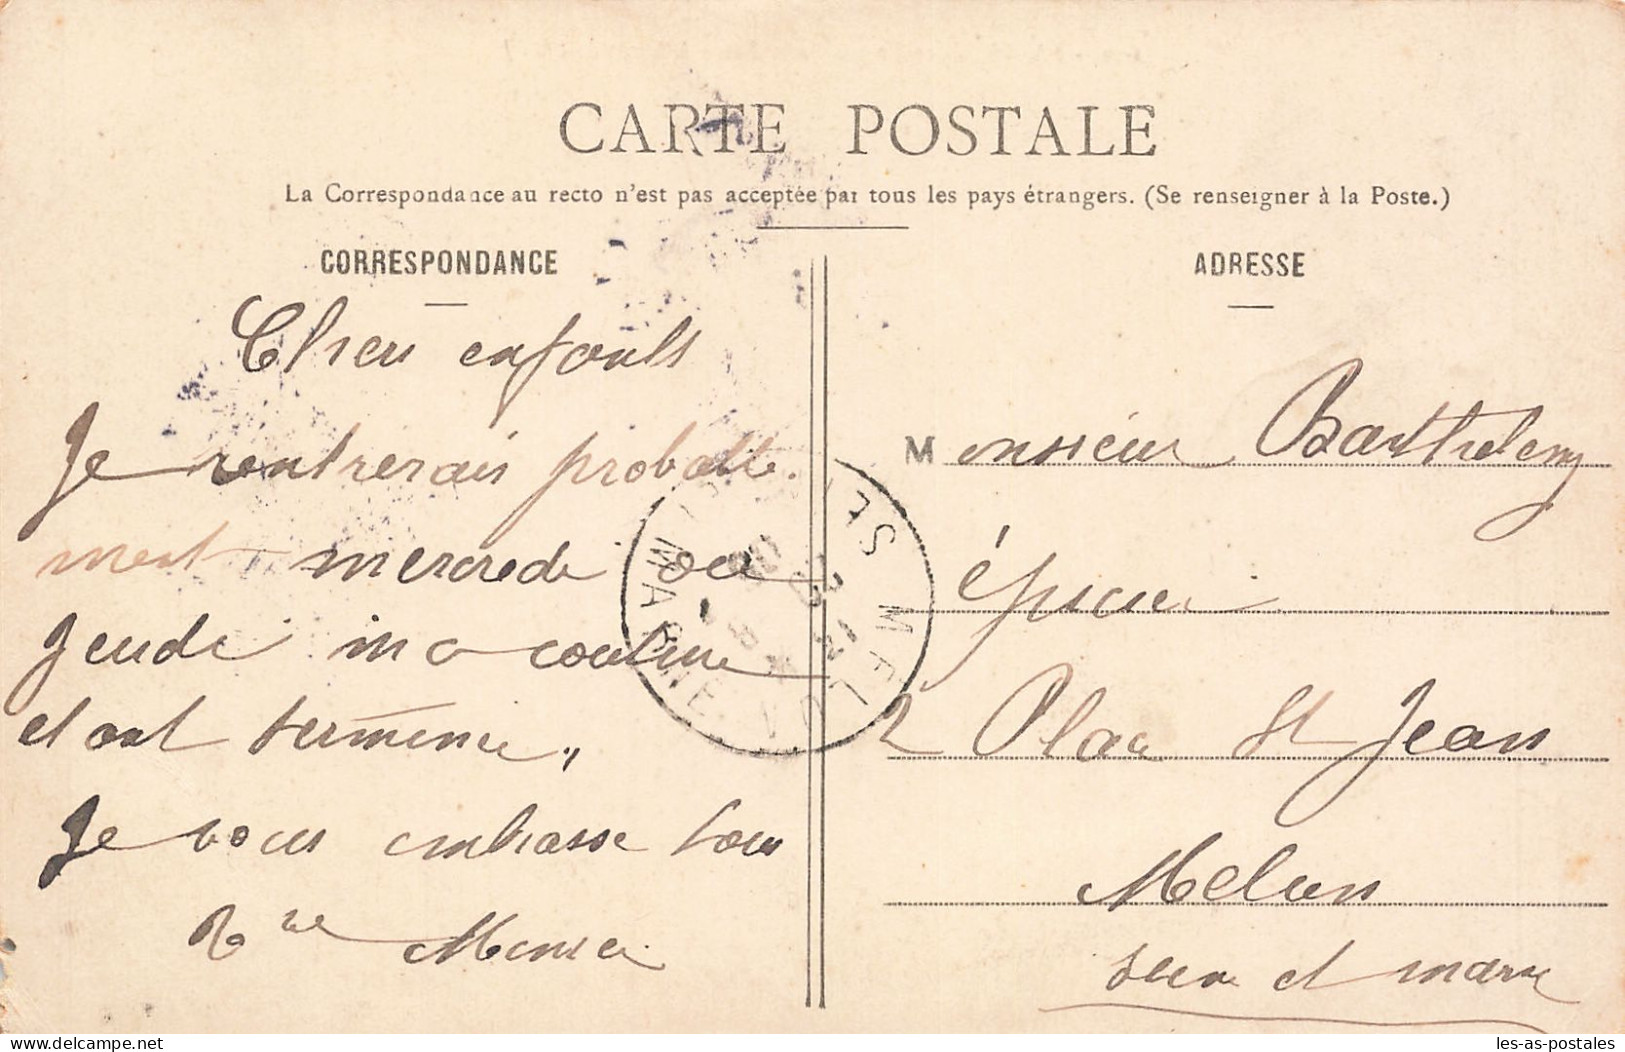 CARTE POSTALE
La Correspondance au recto n'est pas acceptée par tous les pays étrangers. (Se renseigner à la Poste.)
CORRESPONDANCE
Cheu enfants
Je rentrerais probable
ment mercrede ou
Jeudi ma couture
etant terminée,
Je vous embrasse tous
ADRESSE
Monsieur Barthelemy
épicier
2 Place St Jean
Melun
Seine et marne
MELUN
SEINE & MARNE
delcampe.net
les-as-postales